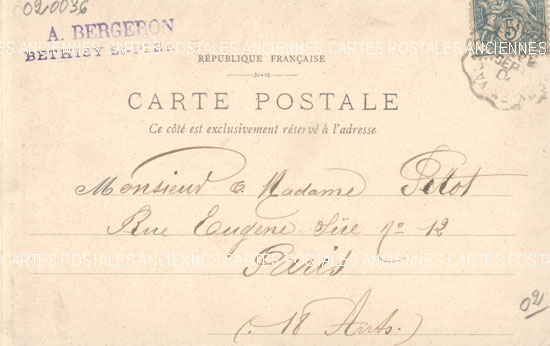 020036
A. BERGERON
BETHISY
5
RÉPUBLIQUE FRANÇAISE
CARTE POSTALE
Ce côté est exclusivement réservé à l'adresse
CARTES POSTALES ANCIENNES CARTES POSTALES ANCIENNES
Monsieur & Madame Petot
Rue Eugène Süe nº 12
CARTES POSTALES ANCIENNES CARTES POSTALES ANCIENNES
Paris
(18 Arts.)